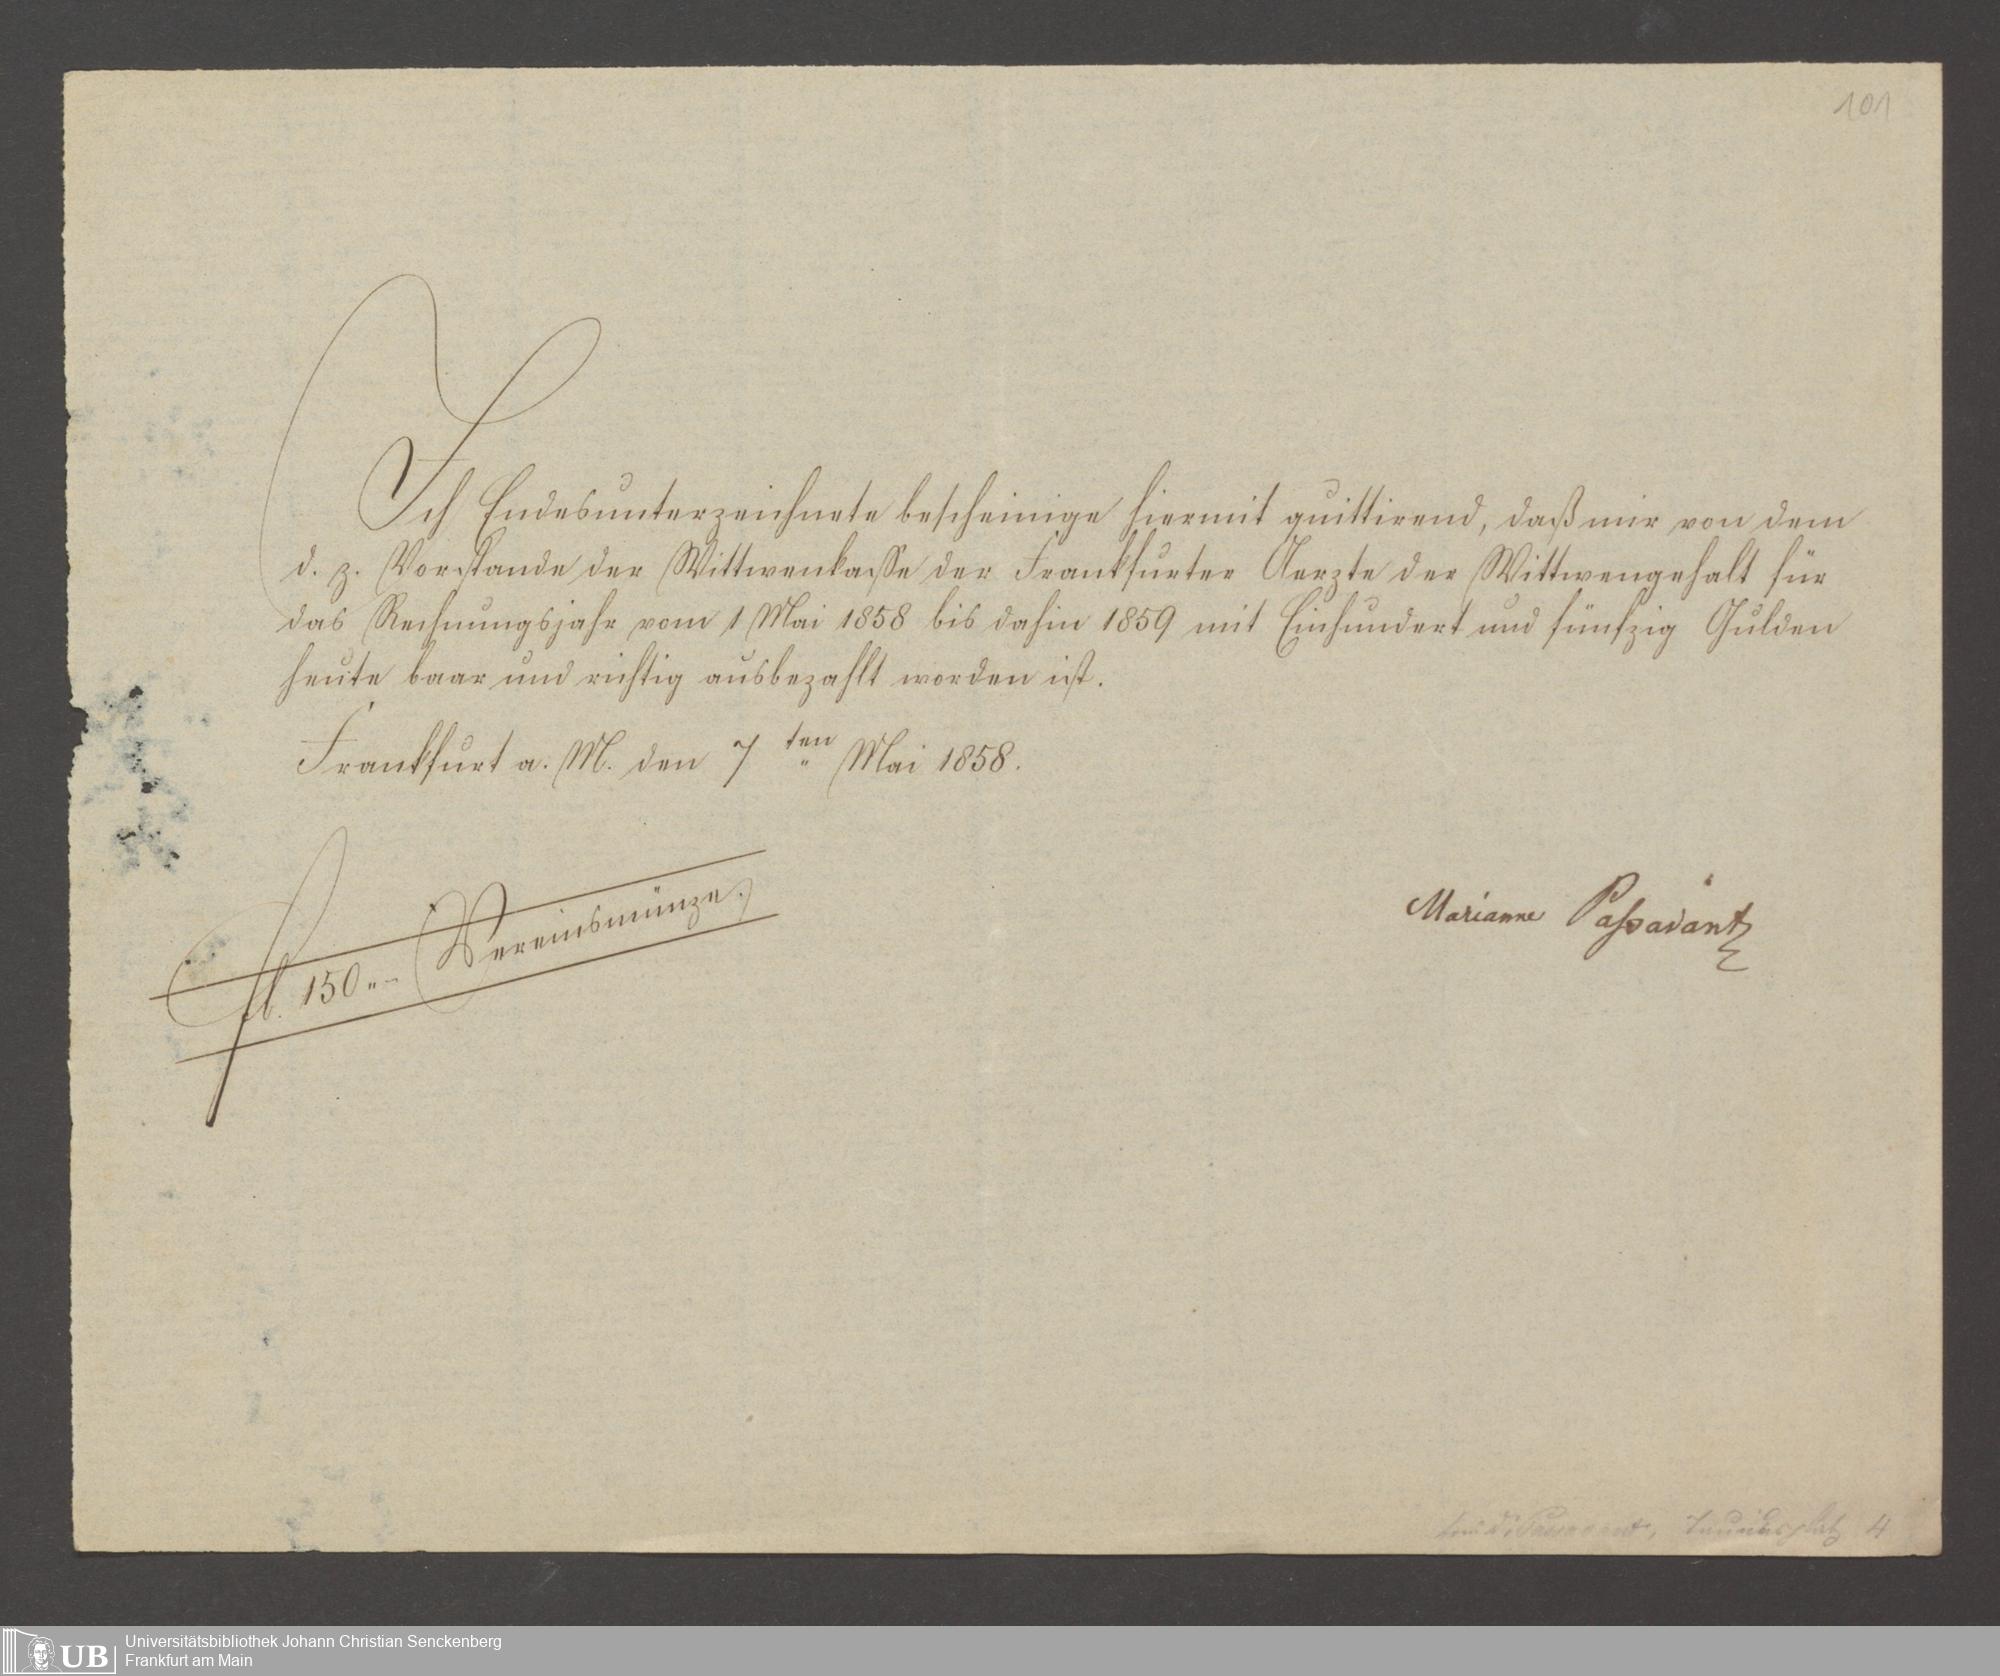 101
Ich Endesunterzeichnete bescheinige hiermit quittirend, daß mir von dem
d. z. Vorstande der Wittwenkasse der Frankfurter Aerzte der Wittwengehalt für
das Rechnungsjahr vom 1 Mai 1858 bis dahin 1859 mit Einhundert und fünfzig Gulden
heute baar und richtig ausbezahlt worden ist.
Frankfurt a. M. den 7 ten Mai 1858.
fl. 150.,- Vereinsmünze.
Marianne Paßavant
Passavant, Taunusplatz 4
UB
Universitätsbibliothek Johann Christian Senckenberg
Frankfurt am Main